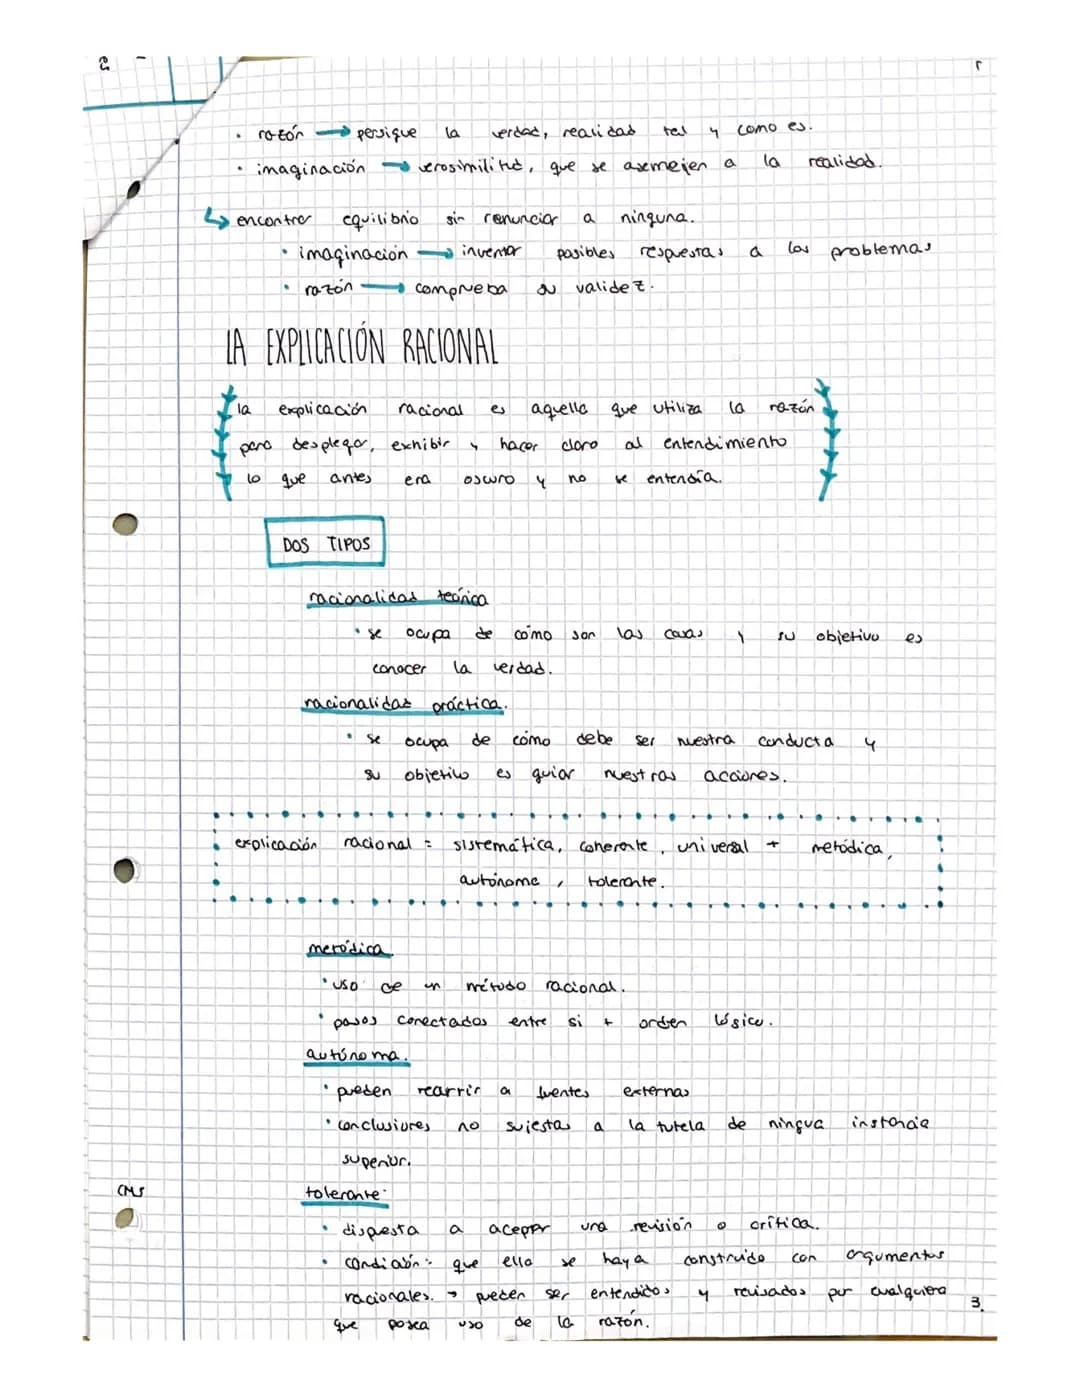 • razón → persigue la verdad, realidad tal y como es.
• imaginación → verosimilitud, que se asemejen a la realidad.
↳ encontrar equilibrio sin renunciar a ninguna.
• imaginación → inventar posibles respuestas a los problemas
• razón → comprueba su validez.
LA EXPLICACIÓN RACIONAL
la explicación racional es aquella que utiliza la razón
para desplegar, exhibir y hacer claro al entendimiento
lo que antes era oscuro y no se entendía.
DOS TIPOS
racionalidad teórica
• se ocupa de cómo son las cosas y su objetivo es
conocer la verdad.
racionalidad práctica.
• se ocupa de cómo debe ser nuestra conducta y
su objetivo es guiar nuestras acciones.
explicación racional = sistemática, coherente, universal + metódica,
autónoma, tolerante.
metódica
• uso de un método racional.
• pasos conectados entre si + orden lógico.
autónoma.
• pueden recurrir a fuentes externas
• conclusiones no sujestas a la tutela de ningua instancia
superior.
CMS
tolerante:
• dispesta a aceptar una revisión o crítica.
• condición: que ella se haya construido con argumentos
racionales. → pueden ser entendidos y revisados por cualquiera
3.
que posea uso de la razón.